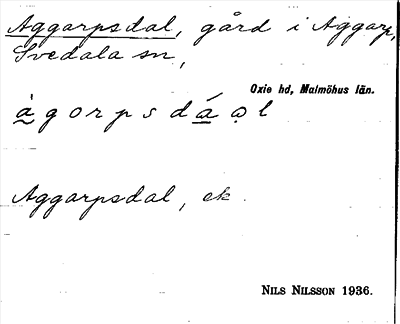 Aggarpsdal, gård i Aggarp,
Svedala sn,
Oxie hd, Malmöhus län.
à̰gorpsdá̲ǫl
Aggarpsdal, ek.
NILS NILSSON 1936.